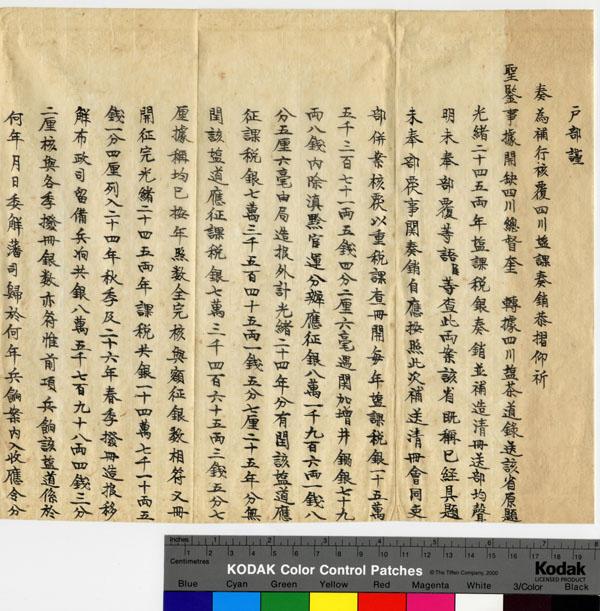 戶部謹
奏為補行核覆四川鹽課奏銷恭摺仰祈
聖鑒事據開缺四川總督奎 轉據四川鹽茶道錄送該省原題
光緒二十四五兩年鹽課稅銀奏銷並補造清冊送部均聲
明未奉部覆等語臣等查此兩案該省既稱已經具題
未奉部覆事關奏銷自應按照此次補送清冊會同吏
部併案核覆以重稅課查冊開每年鹽課稅銀一十五萬
五千三百七十一兩五錢四分二厘六毫遇閏加增井鍋銀七十九
兩八錢內除滇黔官運分辦應征銀八萬一千九百六兩一錢八
分五厘六毫由局造報外計光緒二十四年分有閏該鹽道應
征課稅銀七萬三千五百四十五兩一錢五分七厘二十五年分無
閏該鹽道應征課稅銀七萬三千四百六十五兩三錢五分七
厘據稱均已按年照數全完核與額征銀數相符又冊
開征完光緒二十四五兩年課稅共銀一十四萬七千一十兩五
錢一分四厘列入二十四年秋季及二十六年春季撥冊造報移
解布政司留備兵餉共銀八萬五千七百九十八兩四錢三分
二厘核與各季撥冊銀數亦符惟前項兵餉該鹽道係於
何年月日委解藩司歸於何年兵餉案內入收應令分
inches
Centimetres
KODAK Color Control Patches
© The Tiffen Company, 2000
Kodak
LICENSED PRODUCT
Blue Cyan Green Yellow Red Magenta White 3/Color Black